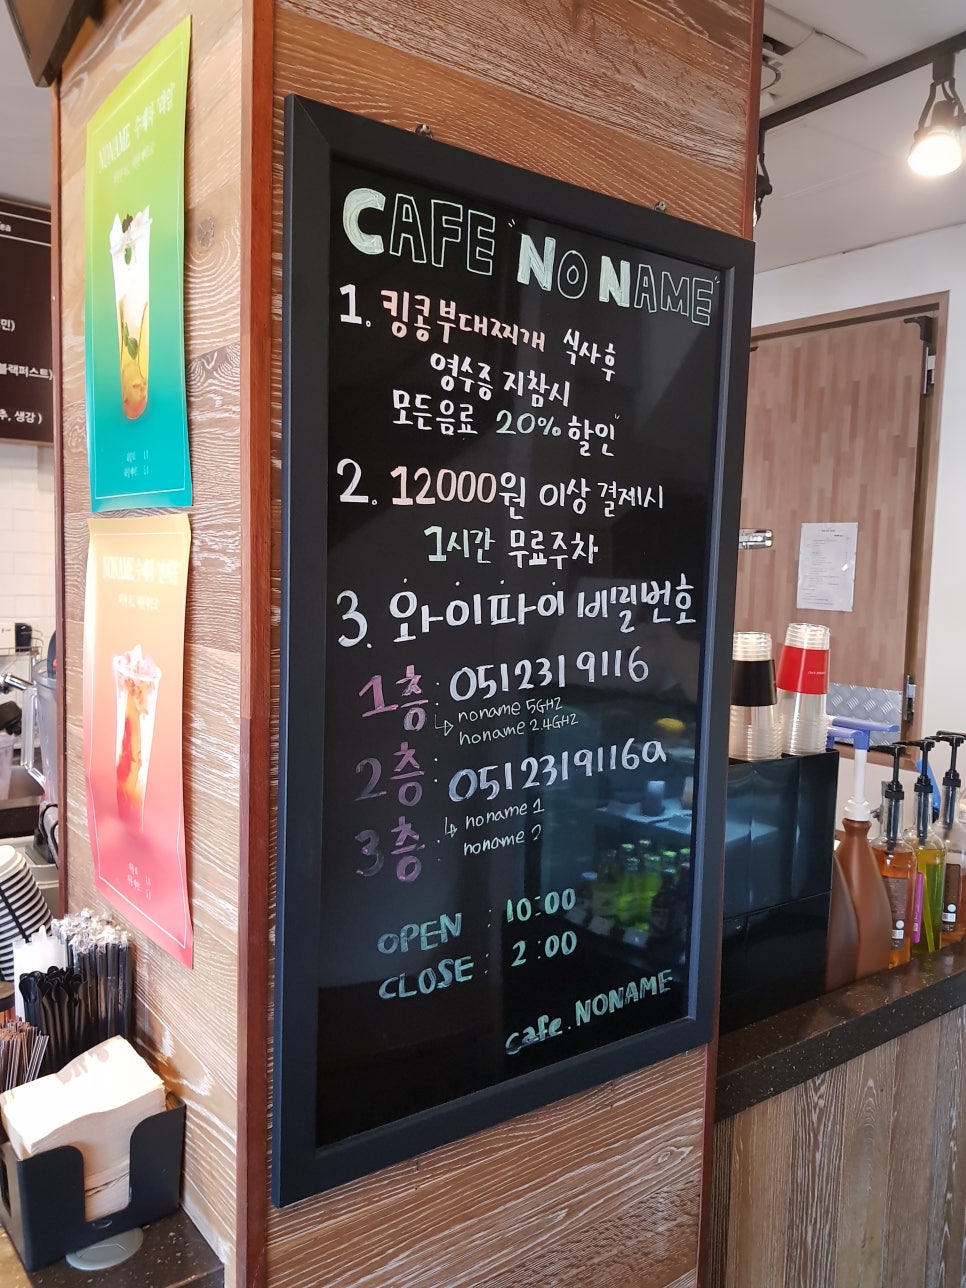 CAFE "NO NAME"
1. 킹콩부대찌개 식사후
영수증 지참시
모든음료 20% 할인"
2. 12000원 이상 결제시
1시간 무료주차
3. 와이파이 비밀번호
1층 : 0512319116
↳ noname 5GHZ
noname 2.4GHZ
2층 : 0512319116a
3층 : ↳ noname 1
noname 2
OPEN : 10:00
CLOSE : 2:00
cafe. NONAME
NONAME 수제차
NONAME 수제차
민)
블랙퍼스트)
추, 생강)